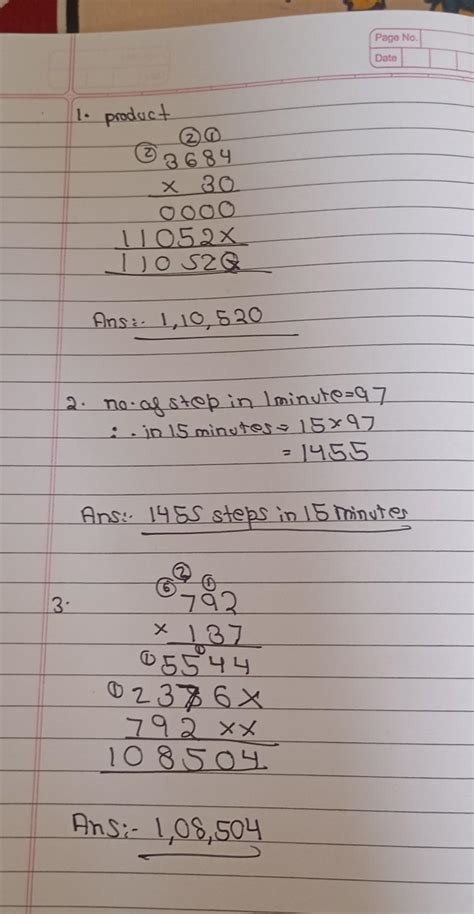 Page No.
Date
1. product
② ①
② 3684
× 30
0000
11052×
110520
Ans:- 1,10,520
2. no. of step in 1 minute=97
∴ in 15 minutes = 15×97
= 1455
Ans:- 1455 steps in 15 minutes
② 
⑥ ①
3. 792
× 137
① 5544
① 2376×
792 ××
108504
Ans:- 1,08,504